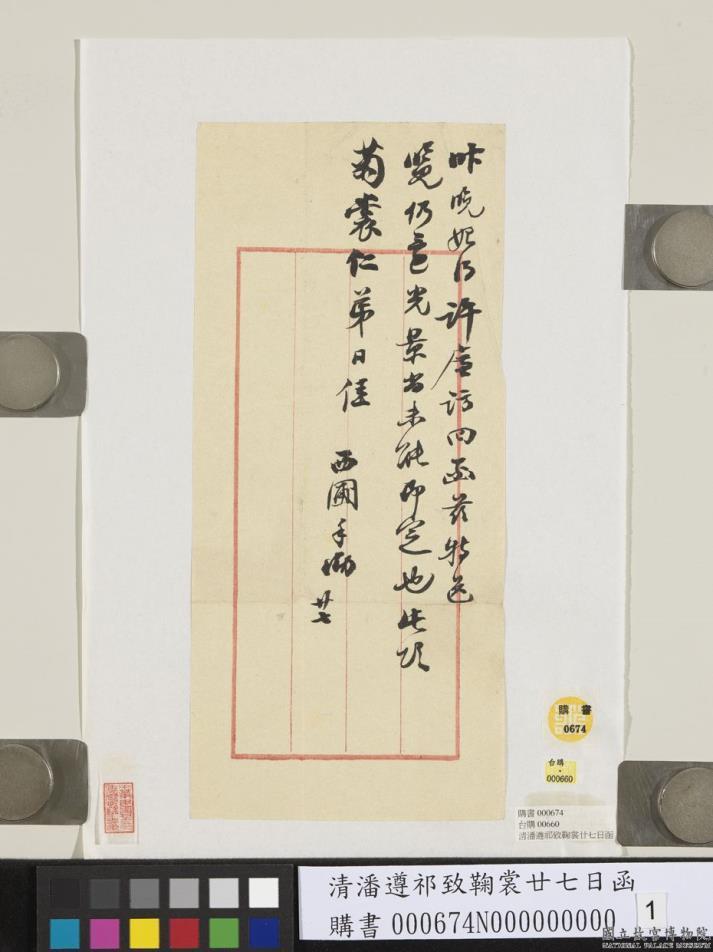 昨晚始得許屋語回函茲特送
覽仍是光景尚未能即定也此頌
菊裳仁弟日佳
西圃手㘭
廿七
購書
0674
台購
000660
購書 000674
台購 00660
清潘遵祁致鞠裳廿七日函
清潘遵祁致鞠裳廿七日函
購書 000674N000000000
1
國立故宮博物院
NATIONAL PALACE MUSEUM